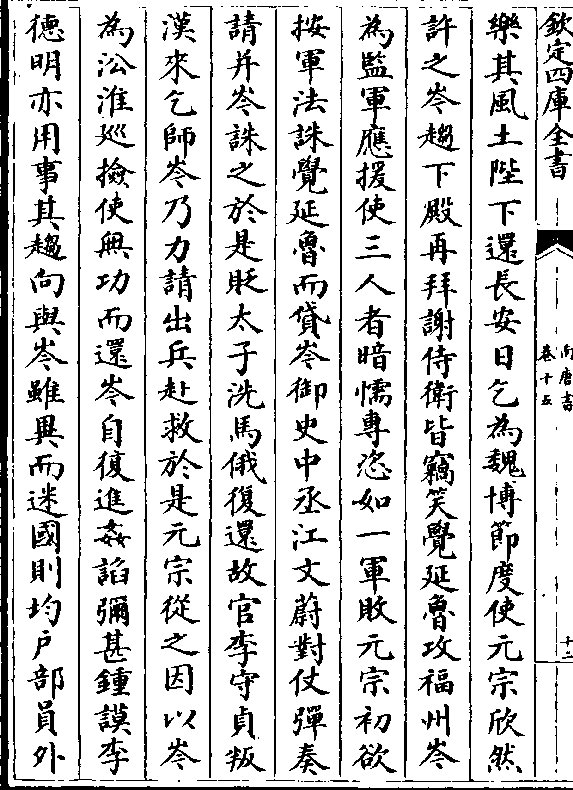 欽定四庫全書
南唐書
卷十五
十二
樂其風土陛下還長安日乞為魏博節度使元宗欣然
許之岑趨下殿再拜謝侍衛皆竊笑覺延魯攻福州岑
為監軍應援使三人者暗懦專恣如一軍敗元宗初欲
按軍法誅覺延魯而貸岑御史中丞江文蔚對仗彈奏
請并岑誅之於是貶太子洗馬俄復還故官李守貞叛
漢來乞師岑乃力請出兵赴救於是元宗從之因以岑
為沿淮巡撿使無功而還岑自復進姦諂彌甚鍾謨李
德明亦用事其趨向與岑雖異而迷國則均戶部員外